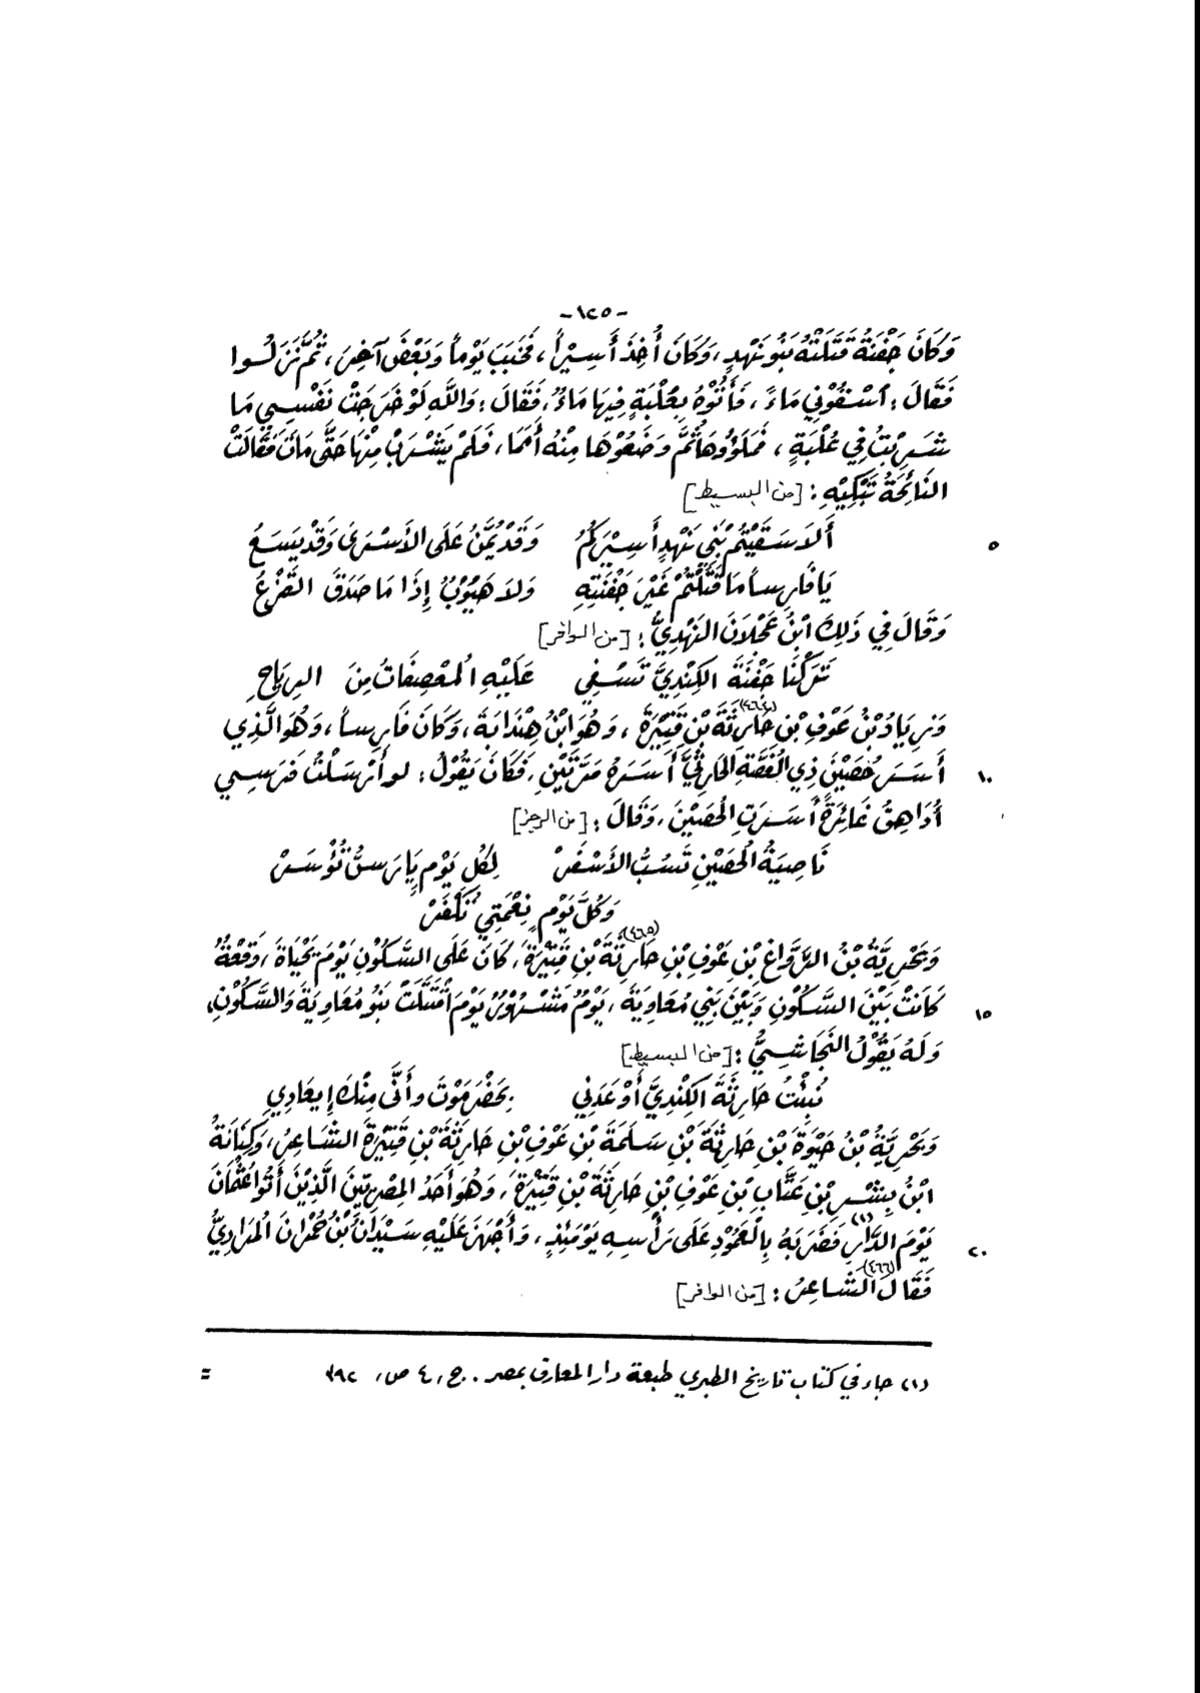 -١٢٥-
وَكَانَ جَفْنَةُ قَتَلَتْهُ بَنُو نَهْدٍ، وَكَانَ أُخِذَ أَسِيْراً، فَخَبَبَ يَوْماً وَبَعْضَ آخِرَ، ثُمَّ نَزَلُسوا
فَقَالَ: اسْقُوْنِي مَاءً، فَأَتُوْهُ بِعُلْبَةٍ فِيهَا مَاءٌ، فَقَالَ: وَاللَّهِ لَوْ خَرَجَتْ نَفْسِي مَا
شَرِبْتُ فِي عُلْبَةٍ، فَمَلَؤُوهَا ثُمَّ وَضَعُوْهَا مِنْهُ أَمَمَا، فَلَمْ يَشْرَبْ مِنْهَا حَتَّى مَاتَ فَقَالَتْ
النَائِحَةُ تَبْكِيْهِ: [من البسيط]
أَلاَ سَقَيْتُم بَنِي نَهْدٍ أَسِيْرَكُمُ وَقَدْ يُمَنُّ عَلَى الأَسْرَى وَقَدْ يَسَعُ ٥
يَا فَارِساً مَا قَتَلْتُمْ غَيْرَ جَفْنَتِهِ وَلاَ هَيُوْبٌ إِذَا مَا صَدَقَ الفَزَعُ
وَقَالَ فِي ذَلِكَ ابْنُ عَجْلاَنَ النَهْدِيُّ: [من الوافر]
تَرَكْنَا جَفْنَةَ الكِنْدِيَّ تَسْفِي عَلَيْهِ المُعْصِفَاتُ مِنَ الرِيَاحِ
وَزِيَادُ بْنُ عَوْفِ بْنِ حَارِثَةَ (٤٦٤) بْنِ قَتِيْرَةَ، وَهُوَ ابْنُ هِنْدَابَةَ، وَكَانَ فَارِساً، وَهُوَ الَّذِي
أَسَرَ حُصَيْنَ ذِي الغُصَّةِ الحَارِثِيَّ أَسَرَهُ مَرَّتَيْنِ، فَكَانَ يَقُوْلُ: لو أَرْسَلْتُ فَرَسِي ١٠
أُدَاهِقُ غَائِرَةً أَسَرَتِ الحُصَيْنَ، وَقَالَ: [من الرجز]
نَاصِيَةُ الحُصَيْنِ تَسُبُّ الأَسْفَرْ لِكُلِ يَوْمٍ يَارَسٌ تُؤْسَرْ
وَكُلَّ يَوْمٍ نِعْمَتِي تُكْفَرْ
وَبَحْرِيَّةُ بْنُ الرَّوَّاغِ بْنِ عَوْفِ بْنِ حَارِثَةَ (٤٦٥) بْنِ قَتِيْرَةَ، كَانَ عَلَى السَّكُوْنِ يَوْمَ يَحْيَاةَ، وَقْعَةٌ
كَانَتْ بَيْنَ السَّكُوْنِ وَبَيْنَ بَنِي مُعَاوِيَةَ، يَوْمٌ مَشْهُوْرٌ يَوْمَ اقْتَتَلَتْ بَنُو مُعَاوِيَةَ وَالسَّكُوْنِ، ١٥
وَلَهُ يَقُوْلُ النَجَاشِيُّ: [من البسيط]
نُبِئْتُ حَارِثَةَ الكِنْدِيَّ أَوْعَدَنِي بِحَضْرَمَوْتَ وأَنَّى مِنْكَ إِيعَادِي
وَبَحْرِيَّةُ بْنُ حَيْوَةَ بْنِ حَارِثَةَ بْنِ سَلَمَةَ بْنِ عَوْفِ بْنِ حَارِثَةَ بْنِ قَتِيْرَةَ الشَاعِرُ، وَكِنَانَةُ
ابْنُ بِشْرِ بْنِ عَتَّابِ بْنِ عَوْفِ بْنِ حَارِثَةَ بْنِ قَتِيْرَةَ، وَهُوَ أَحَدُ المِصْرِيّيْنَ الَّذِيْنَ أَتُوا عُثْمَانَ
يَوْمَ الدَّارِ (١) فَضَرَبَهُ بِالْعَمُوْدِ عَلَى رَأْسِهِ يَوْمَئِذٍ، وَأَجْهَزَ عَلَيْهِ سَيْدَانُ بْنُ حُمْرَانَ المُرَادِيُّ ٢٠
فَقَالَ الشَاعِرُ (٤٦٦): [من الوافر]
(١) جاء في كتاب تاريخ الطبري طبعة دار المعارف بمصر. ج، ٤ ص، ٣٩٢ =